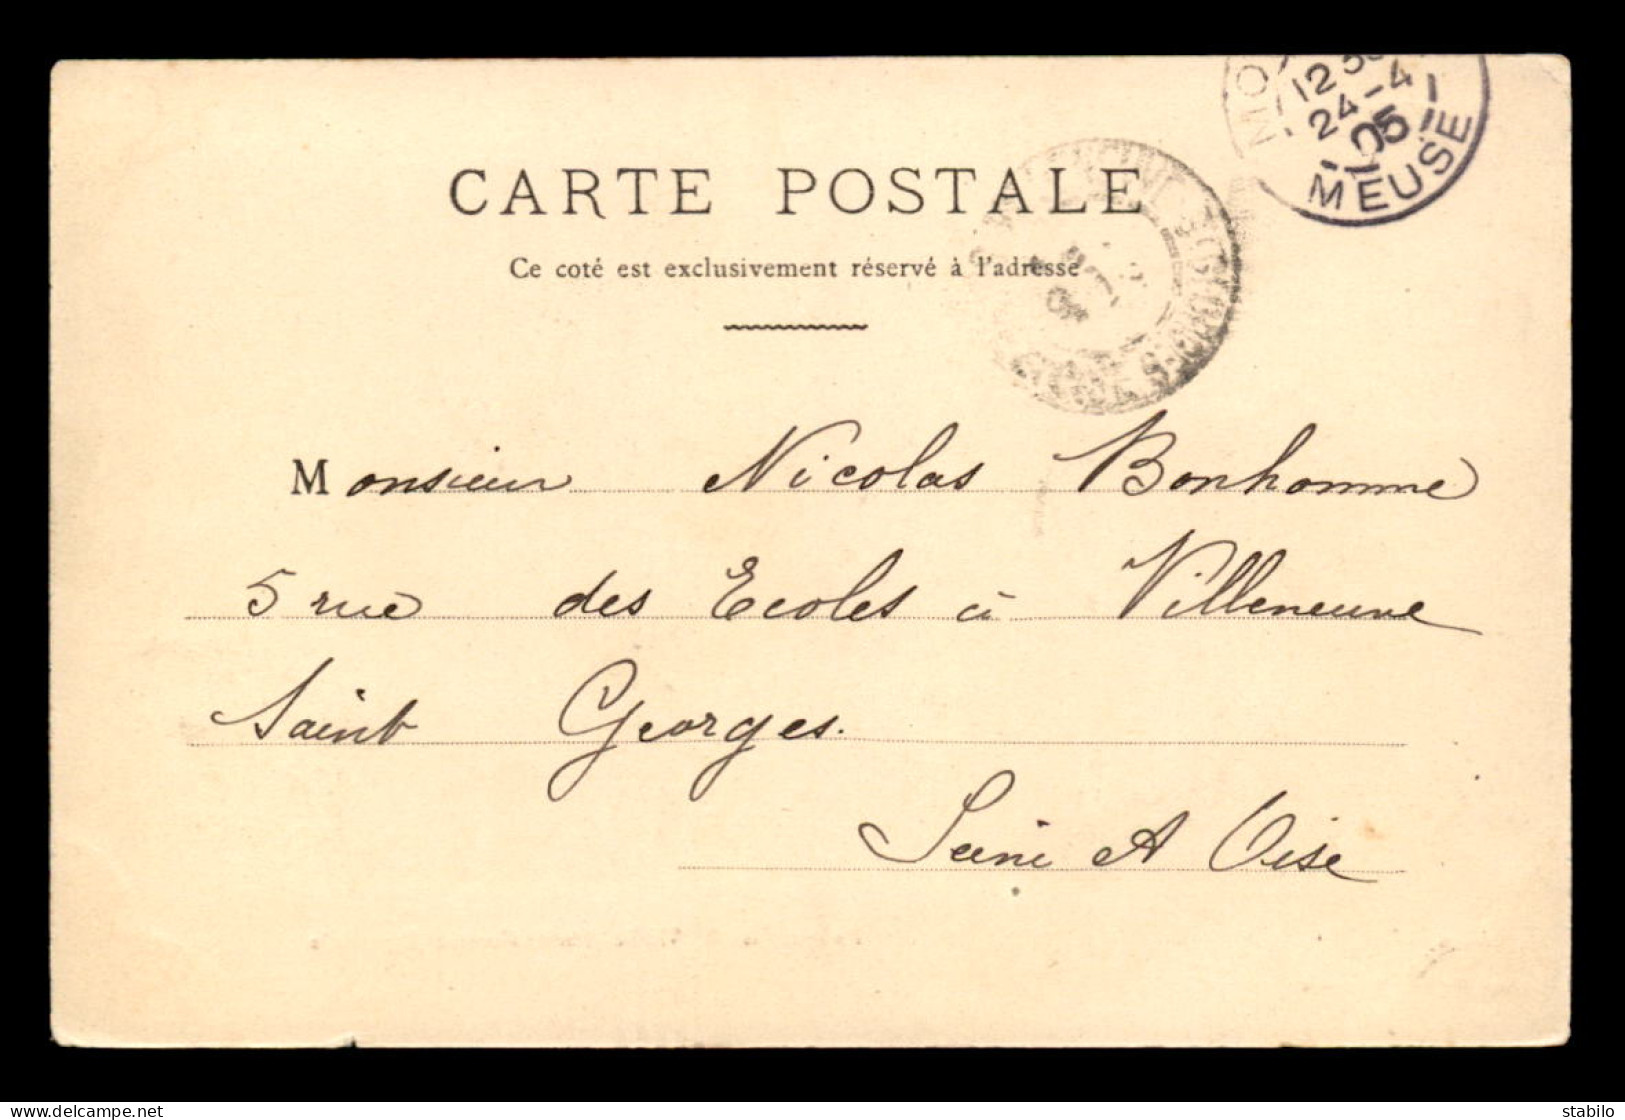 12
24-4
05
MEUSE
CARTE POSTALE
Ce coté est exclusivement réservé à l'adresse
Monsieur Nicolas Bonhomme
5 rue des Ecoles à Villeneuve
Saint Georges.
Seine et Oise
delcampe.net
stabilo